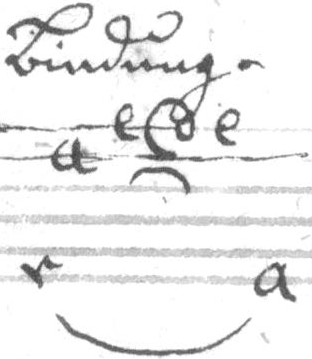 Bindung.
a e δ e
r a